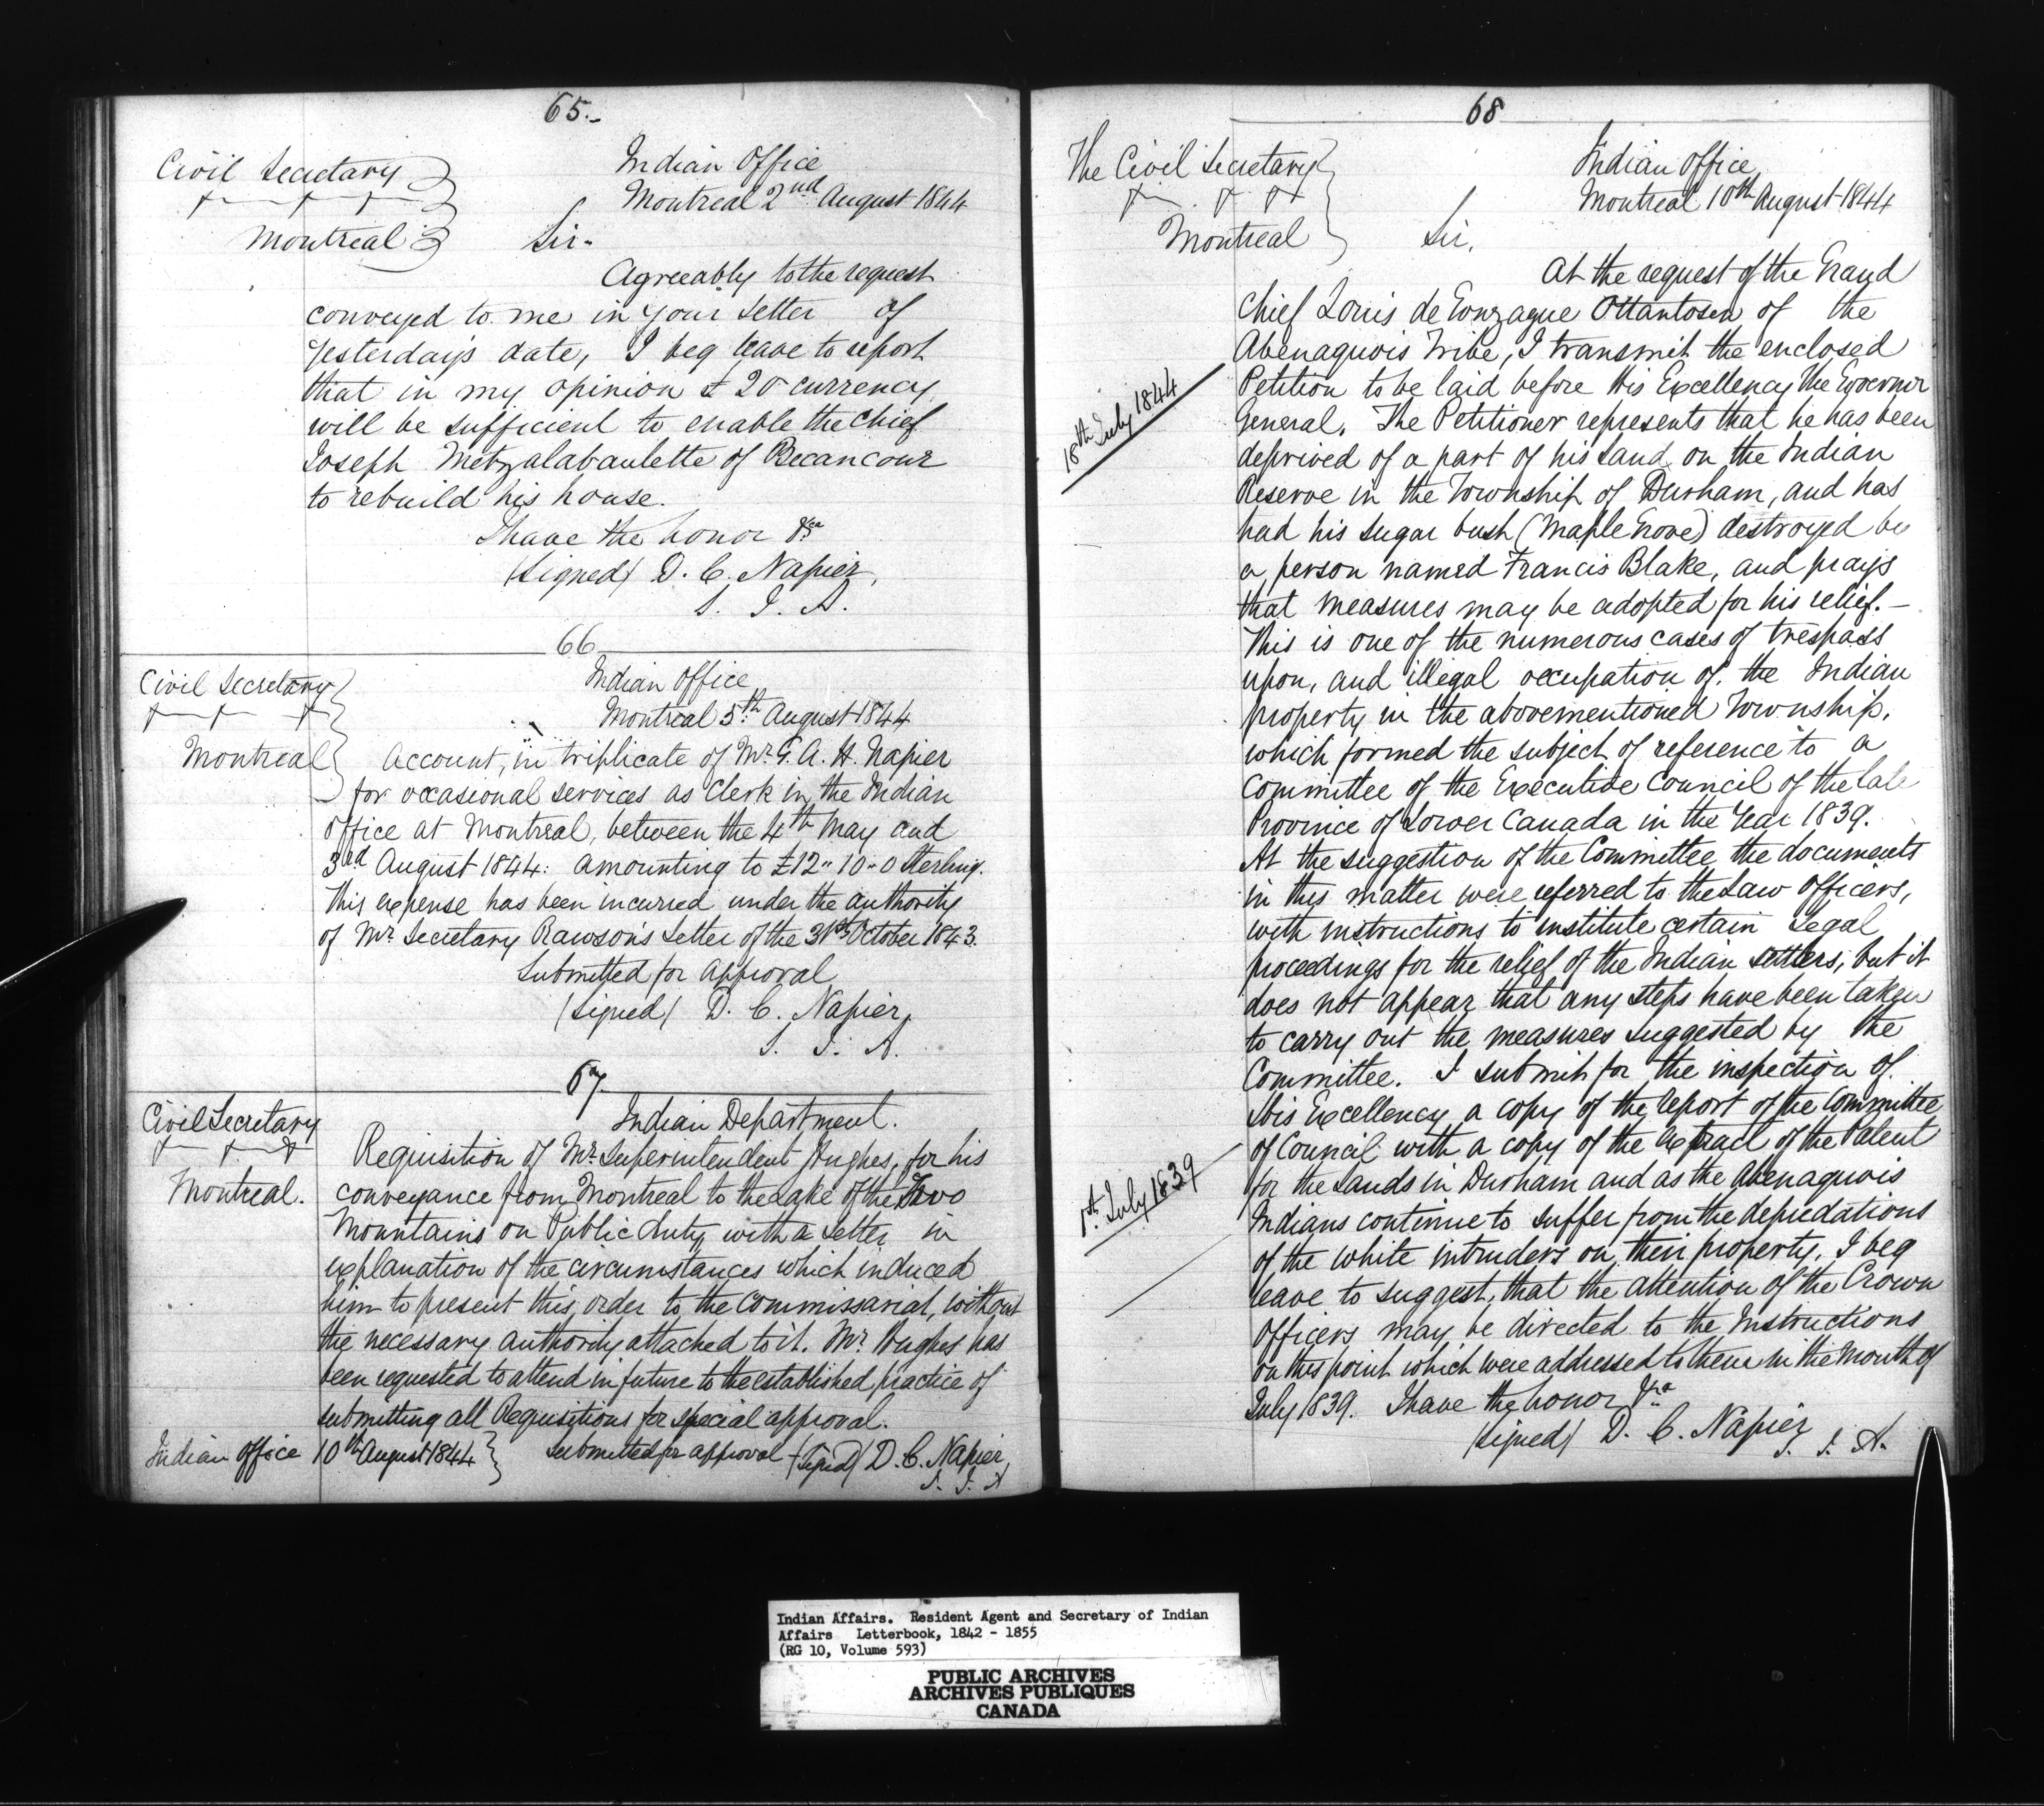 65.-
Civil Secretary
Montreal
Indian Office
Montreal 2nd August 1844
Sir.
Agreeably to the request
conveyed to me in your Letter of
yesterday's date, I beg leave to report
that in my opinion £ 20 currency
will be sufficient to enable the Chief
Joseph Metzalabaulette of Becancour
to rebuild his house.
I have the honor &ca
(Signed) D. C. Napier,
S. I. A.
66
Civil Secretary
Montreal
Indian Office
Montreal 5th August 1844
Account, in triplicate of Mr. G. A. H. Napier
for occasional services as Clerk in the Indian
Office at Montreal, between the 4th May and
3rd August 1844: amounting to £12"10-0 Sterling.
This expense has been incurred under the authority
of Mr. Secretary Rawson's Letter of the 31st October 1843.
Submitted for approval
(Signed) D. C. Napier,
S. I. A.
67.
Civil Secretary
Montreal.
Indian Department.
Requisition of Mr. Superintendent Hughes, for his
conveyance from Montreal to the Lake of the Two
Mountains on Public duty with a Letter in
explanation of the circumstances which induced
him to present this order to the Commissariat, without
the necessary authority attached to it. Mr. Hughes has
been requested to attend in future to the established practice of
submitting all Requisitions for special approval.
Indian Office 10th August 1844 } Submitted for approval (Signed) D. C. Napier,
S. I. A
68
The Civil Secretary
Montreal
Indian Office
Montreal 10th August 1844
Sir,
At the request of the Grand
Chief Louis de Gonzague Ottantosen of the
Abenaquois Tribe, I transmit the enclosed
18th July 1844
Petition to be laid before His Excellency The Governor
General. The Petitioner represents that he has been
deprived of a part of his Land on the Indian
Reserve in the Township of Durham, and has
had his sugar bush (Maple Grove) destroyed by
a person named Francis Blake, and prays
that measures may be adopted for his relief.-
This is one of the numerous cases of trespass
upon, and illegal occupation of the Indian
property in the abovementioned Township,
which formed the subject of reference to a
Committee of the Executive Council of the late
Province of Lower Canada in the Year 1839.
At the suggestion of the Committee the documents
in this matter were referred to the Law Officers,
with instructions to institute certain Legal
proceedings for the relief of the Indian settlers, but it
does not appear that any steps have been taken
to carry out the measures suggested by the
Committee. I submit for the inspection of
His Excellency a copy of the report of the Committee
1st. July 1839
of Council with a copy of the extract of the Patent
for the Lands in Durham and as the Abenaquois
Indians continue to suffer from the depredations
of the white intruders on their property, I beg
leave to suggest, that the attention of the Crown
Officers may be directed to the Instructions
on this point which were addressed to them in the Month of
July 1839. I have the honor &ca
(Signed) D. C. Napier
S. I. A.
Indian Affairs. Resident Agent and Secretary of Indian
Affairs Letterbook, 1842 - 1855
(RG 10, Volume 593)
PUBLIC ARCHIVES
ARCHIVES PUBLIQUES
CANADA